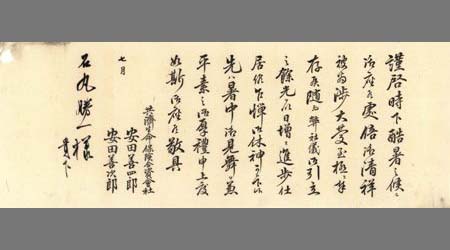 謹啓時下酷暑之候ニ
御座候處倍御清祥
被為渉大慶至極ニ奉
存候随而弊社儀御引立
之餘光ニ日増ニ進歩仕
居候乍憚御休神可被下候
先ハ暑中御見舞旁
平素之御厚禮申上度
如斯御座候敬具
共済生命保険合資会社
安田善四郎
安田善次郎
七月
石丸勝一様
貴下